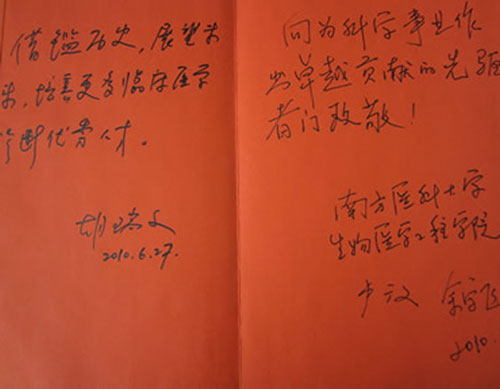 借鑑历史，展望未
来，培养更多临床医学
诊断优秀人才。
胡瑞文
2010.6.27.
向为科学事业作
出卓越贡献的先驱
者们致敬！
南方医科大学
生物医学工程学院
余学飞
2010.